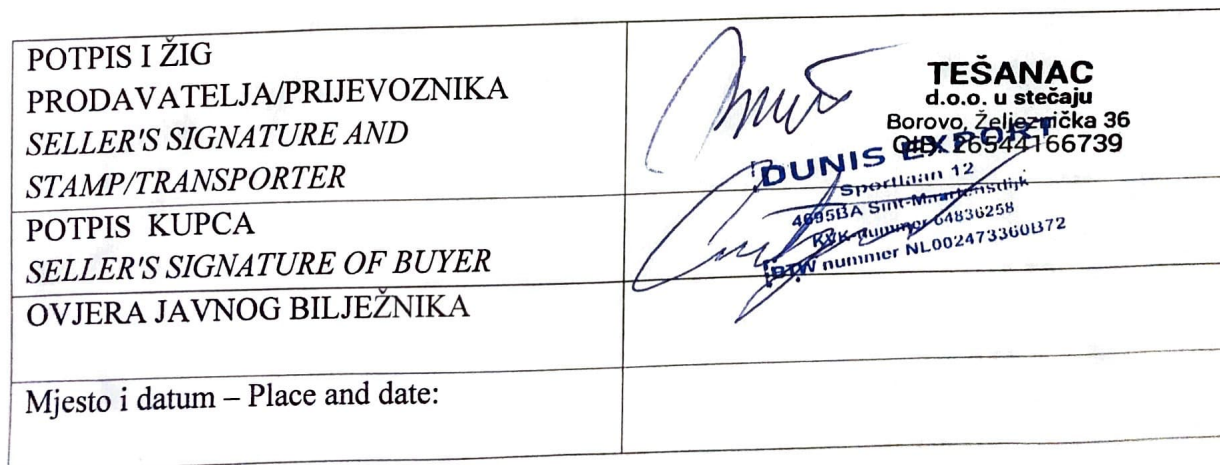 POTPIS I ŽIG
PRODAVATELJA/PRIJEVOZNIKA
SELLER'S SIGNATURE AND
STAMP/TRANSPORTER
TEŠANAC
d.o.o. u stečaju
Borovo, Željeznička 36
OIB: 26544166739
DUNIS EXPORT
Sportlaan 12
4695BA Sint-Maartensdijk
KVK-nummer 64836258
BTW nummer NL002473360B72
POTPIS KUPCA
SELLER'S SIGNATURE OF BUYER
OVJERA JAVNOG BILJEŽNIKA
Mjesto i datum – Place and date: